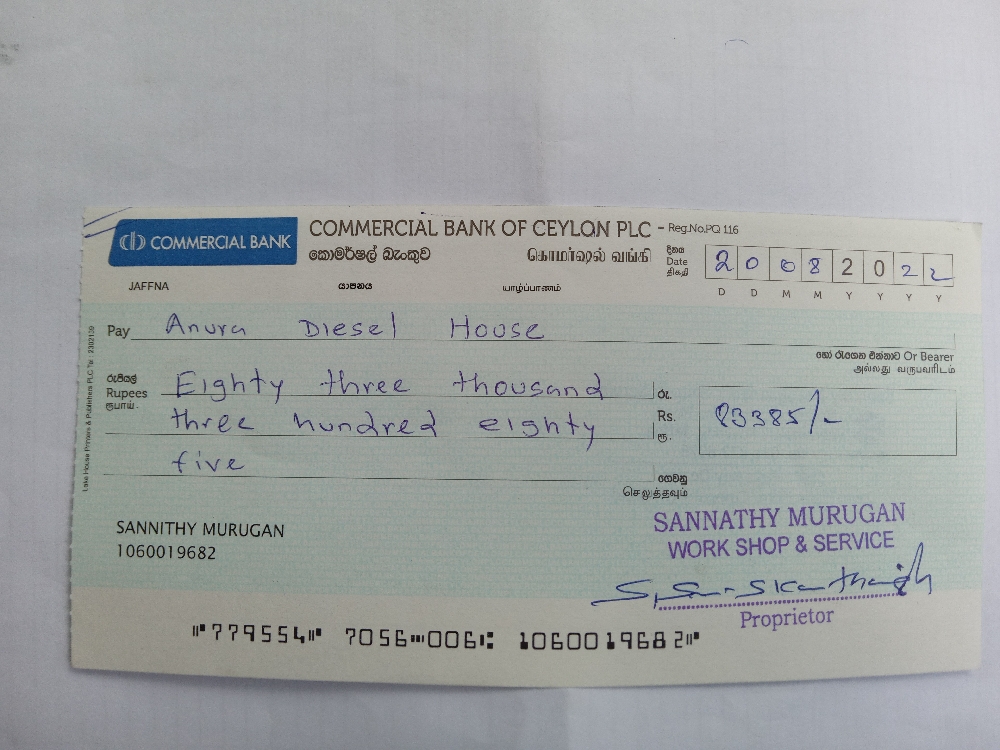 COMMERCIAL BANK
COMMERCIAL BANK OF CEYLON PLC - Reg.No.PQ 116
කොමර්ෂල් බැංකුව கொமர்ஷல் வங்கி
දිනය
Date
திகதி
2 0 0 8 2 0 2 2
D D M M Y Y Y Y
JAFFNA යාපනය யாழ்ப்பாணம்
Pay Anura Diesel House
හෝ රැගෙන එන්නාට Or Bearer
அல்லது வருபவரிடம்
රුපියල්
Rupees
ரூபாய்
Eighty three thousand
three hundred eighty
five
රු.
Rs.
ரூ.
83385/-
ගෙවනු
செலுத்தவும்
Lake House Printers & Publishers PLC Tel : 2302139
SANNITHY MURUGAN
1060019682
SANNATHY MURUGAN
WORK SHOP & SERVICE
Proprietor
⑈779554⑈ 7056⑉006⑆ 1060019682⑈